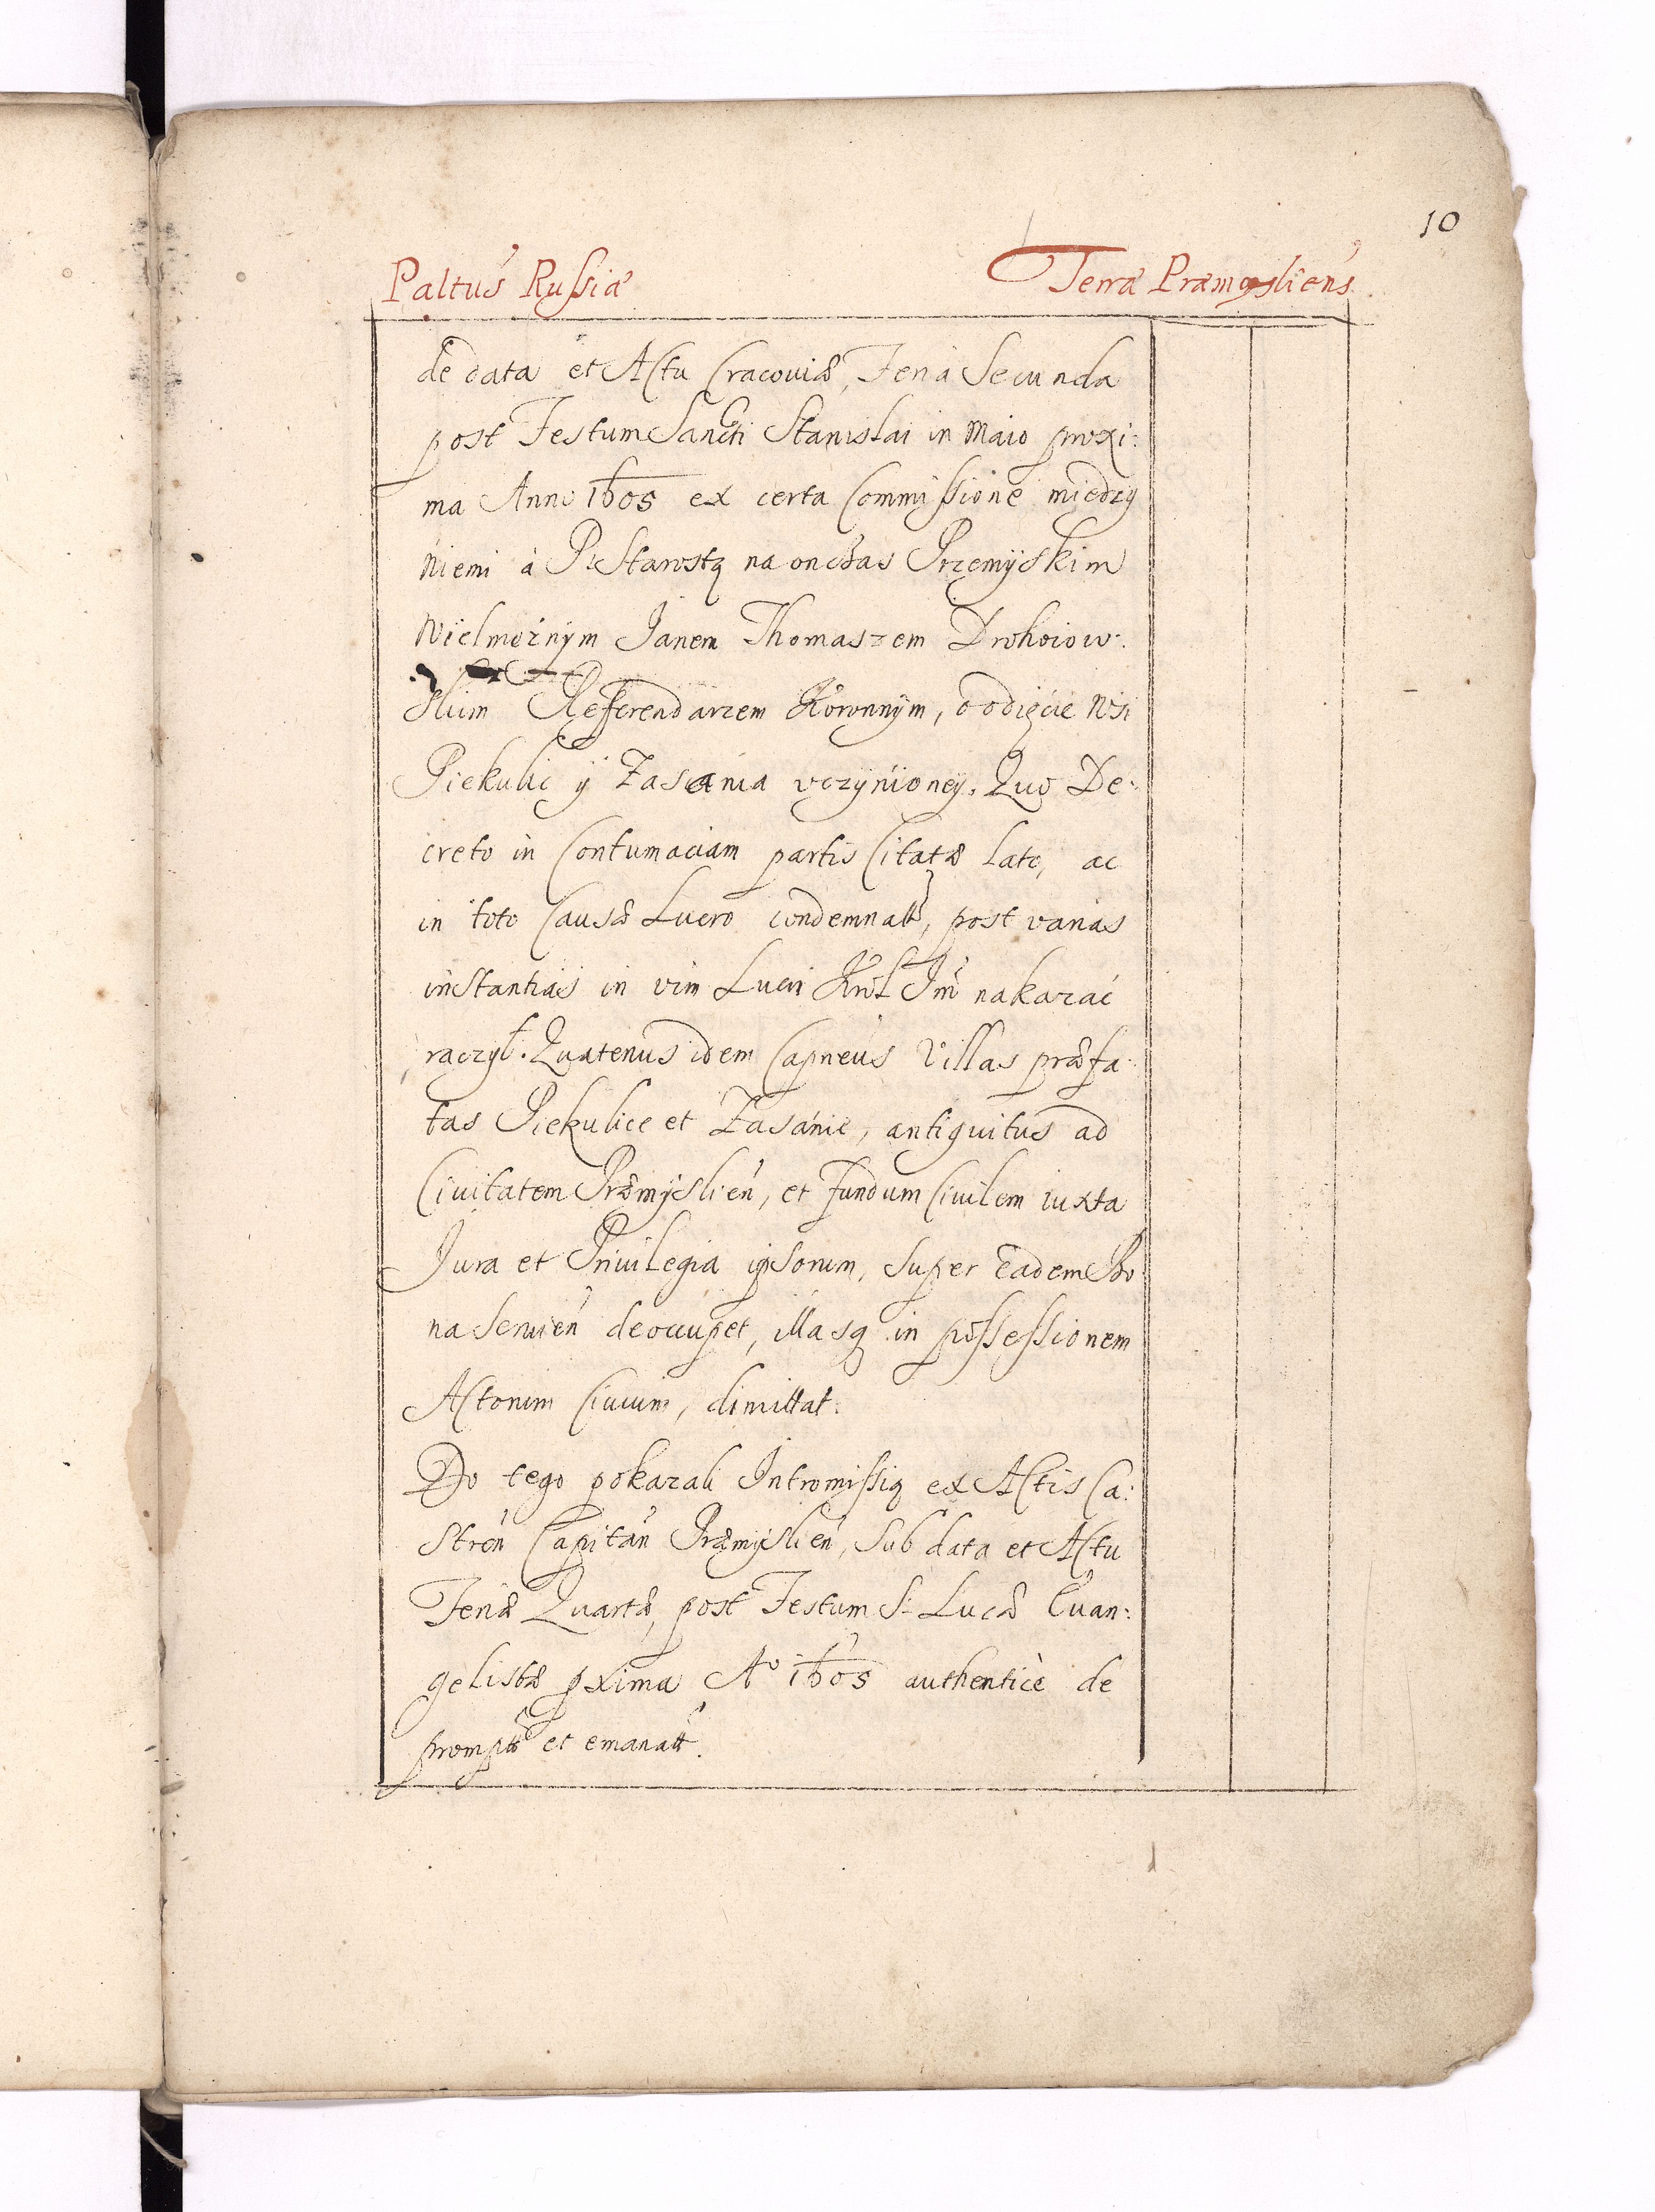 10
Paltus Russiæ Terræ Præmysliens.
de data et Actu Cracouiæ, Feria Secunda
post Festum Sancti Stanislai in Maio proxi:
ma Anno 1605 ex certa Commissione między
niemi á P. Starostą na onczas Przemyskim
Wielmożnym Janem Thomaszem Drohoiow:
skim Referendarzem Koronnym, o odięcie Wsi
Piekulic ÿ Zasania vczynioney. Quo De:
creto in Contumaciam partis Citatæ lato, ac
in toto Causæ Lucro condemnatæ, post varias
instantias in vim Lucri Król Jm̃ nakazać
raczył. Quatenus idem Capneus Villas præfa:
tas Piekulice et Zasánie, antiquitus ad
Ciuitatem Præmyslien, et fundum Ciuilem iuxta
Jura et Priuilegia ipsorum, super eadem Bo
na seruien deoccupet, illasq in possessionem
Actorum Ciuium, dimittat.
Do tego pokazali Intromissią ex Actis Ca:
stren Capitan Præmyslien, sub data et Actu
Feriæ Quartæ, post Festum S. Lucæ Euan:
gelistæ pxima Aº 1605 authenticè de
promptæ et emanatæ.